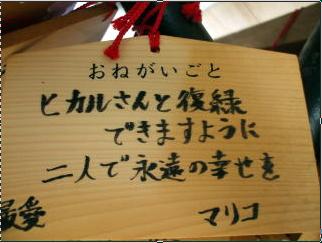 おねがいごと
ヒカルさんと復縁
できますように
二人で永遠の幸せを
最愛
マリコ